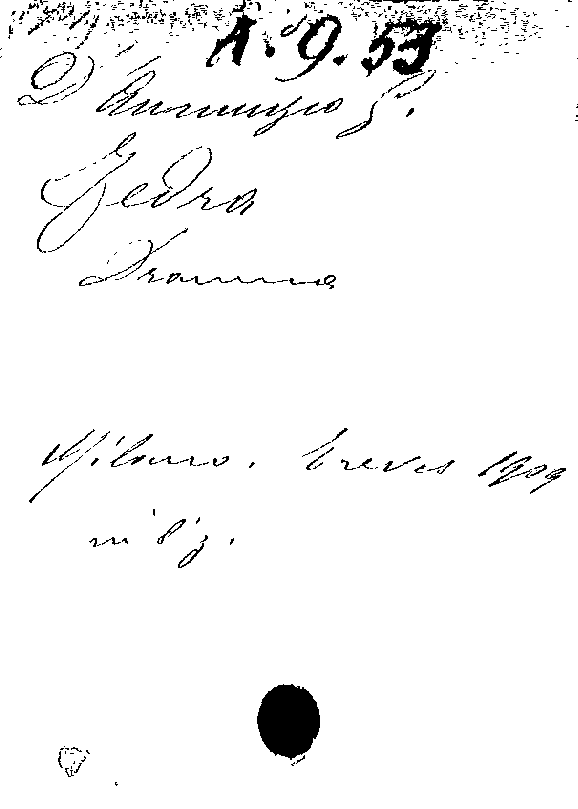 A. 9. 53
D'Annunzio G.
Fedra
Dramma
Milano. Treves 1909
in 8°g.